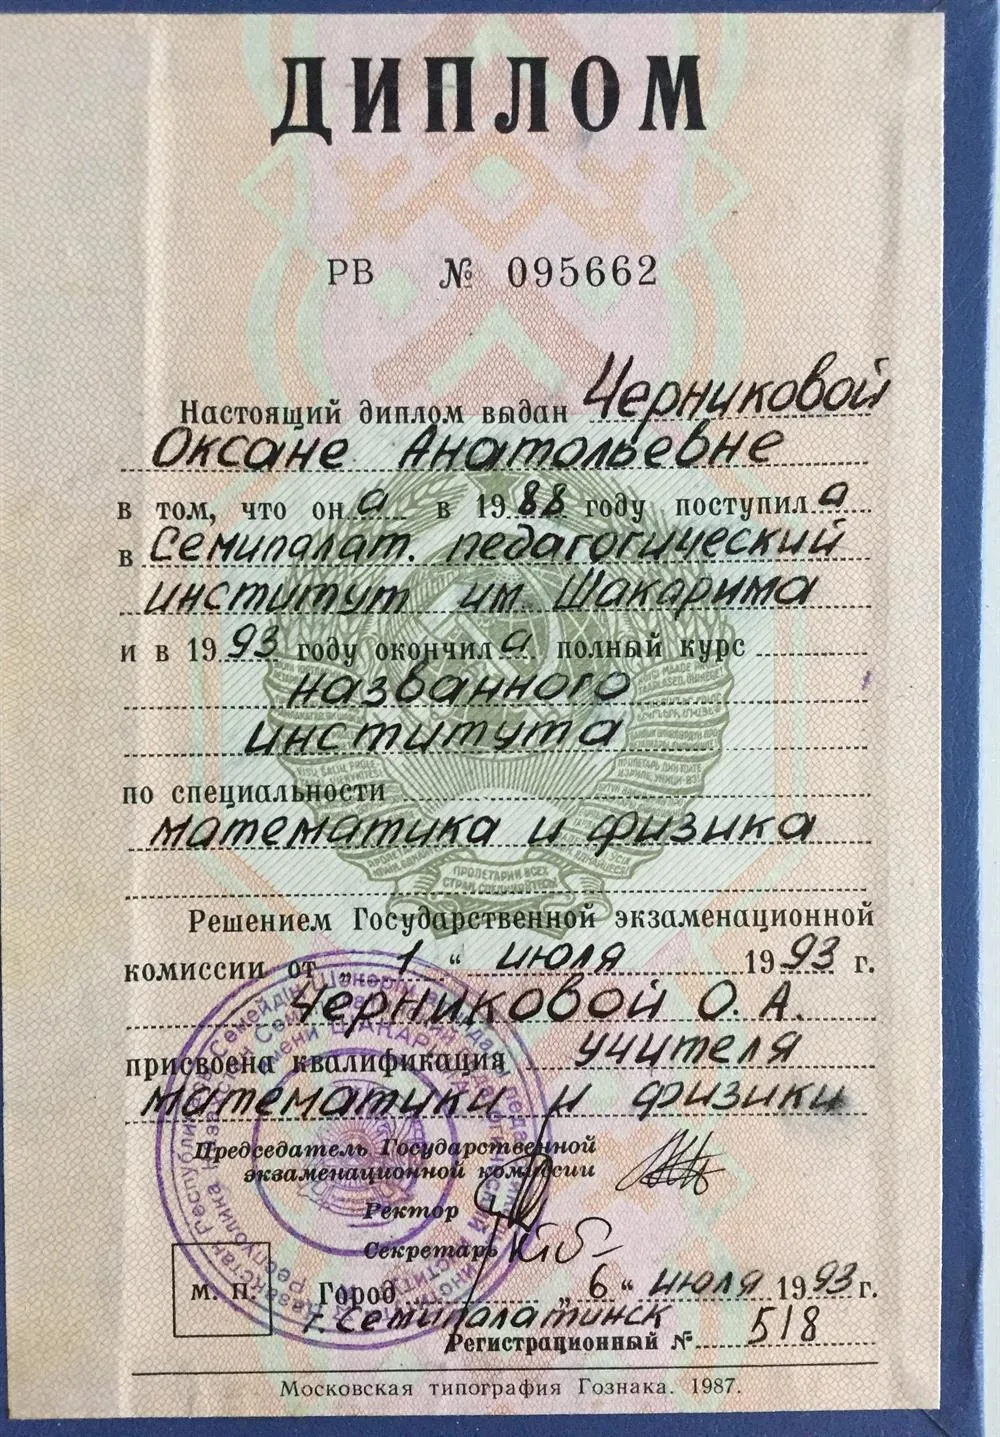 ДИПЛОМ
РВ № 095662
Настоящий диплом выдан Черниковой
Оксане Анатольевне
в том, что он а в 1988 году поступил а
в Семипалат. педагогический
институт им. Шакарима
и в 1993 году окончил а полный курс
названного
института
по специальности
математика и физика
Решением Государственной экзаменационной
комиссии от „ 1 “ июля 1993 г.
Черниковой О. А.
присвоена квалификация учителя
математики и физики
Председатель Государственной
экзаменационной комиссии
Ректор
Секретарь
М. П. Город „ 6 “ июля 1993 г.
г. Семипалатинск
Регистрационный № 518
Московская типография Гознака. 1987.
ПРОЛЕТАРИИ ВСЕХ
СТРАН, СОЕДИНЯЙТЕСЬ